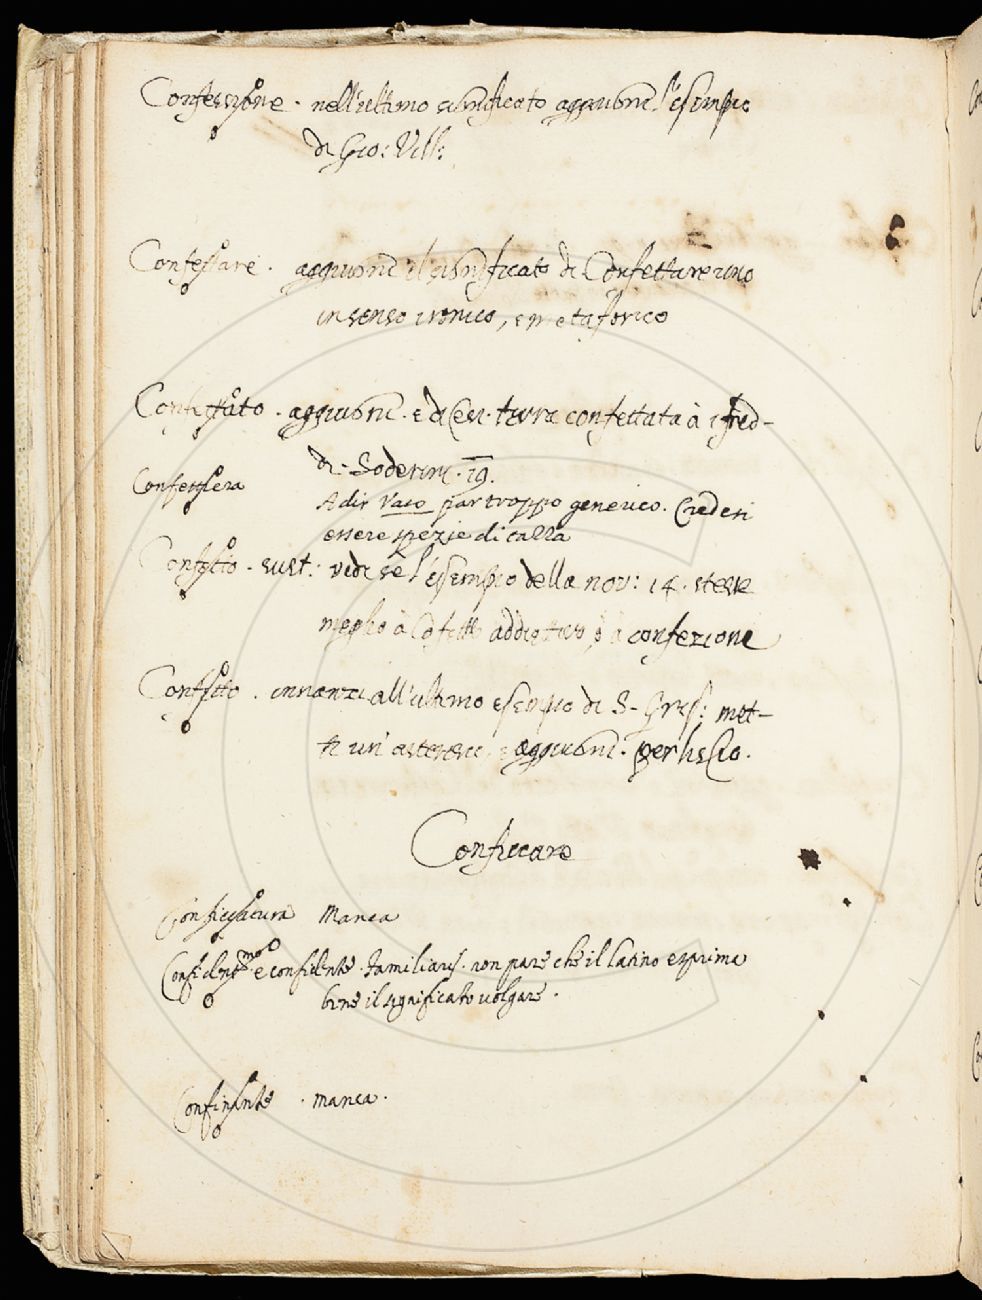 Confessione . nell'ultimo significato aggiugni l'esempio
di Gio: Vill:
Confettare . aggiugni il significato di Confettare uno
in senso ironico, e metaforico
Confettato . aggiugni . e dicesi terra confettata à i fred-
di . Soderini . 19.
Confettiera
A dir Vaso par troppo generico. Credesi
essere spezie di tazza
Confetto . sust: vedi se l'esempio della nov: 14. stesse
meglio à Cofetto addiettivo, ò à confezione
Confitto . innanzi all'ultimo esempio di S. Gris: met-
ti un' asterisco, e aggiugni . per
Conficcare
Conficcatura Manca
Confidentmo e confidente . familiaris . non pare che il latino esprima
bene il significato volgare .
Confinante . manca .